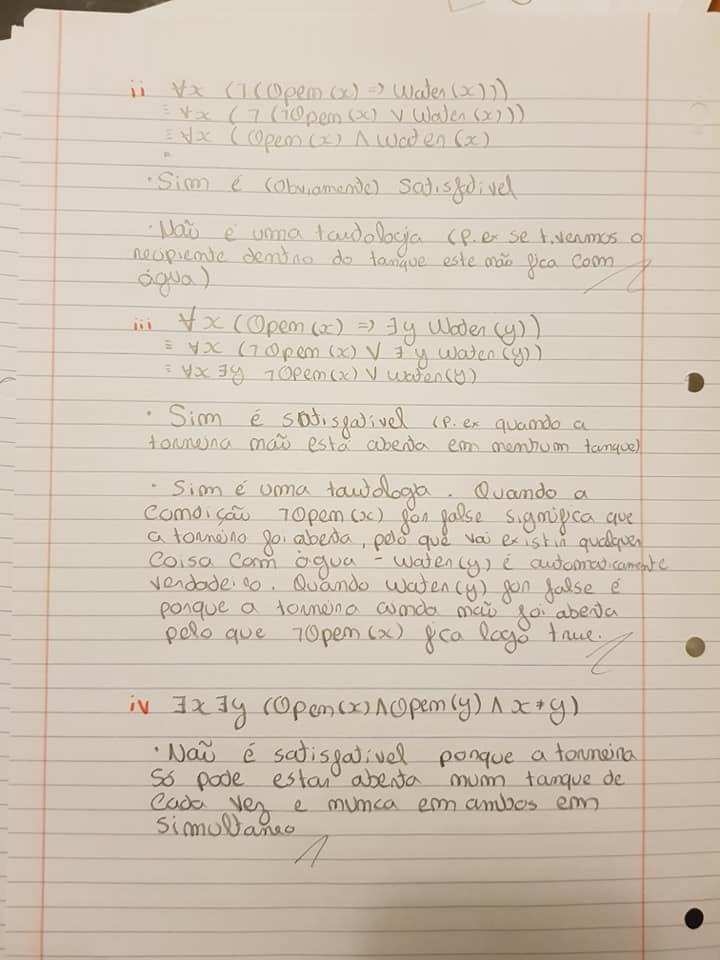 ii ∀x (¬(Open(x) => Water(x)))
≡ ∀x (¬(¬Open(x) ∨ Water(x)))
≡ ∀x (Open(x) ∧ Water(x)
=
· Sim é (obviamente) satisfatível
· Não é uma tautologia (p.ex se tivermos o
recipiente dentro do tanque este não fica com
água)
iii ∀x (Open(x) => ∃y Water(y))
≡ ∀x (¬Open(x) ∨ ∃y Water(y))
≡ ∀x ∃y ¬Open(x) ∨ Water(y)
· Sim é satisfatível (p.ex quando a
torneira não está aberta em nenhum tanque)
· Sim é uma tautologa. Quando a
condição ¬Open(x) for false significa que
a torneira foi aberta, pelo que vai existir qualquer
coisa com água - Water(y) é automaticamente
verdadeiro. Quando Water(y) for false é
porque a torneira ainda não foi aberta
pelo que ¬Open(x) fica logo true.
iv ∃x ∃y (Open(x) ∧ Open(y) ∧ x ≠ y)
· Não é satisfatível porque a torneira
só pode estar aberta num tanque de
cada vez e nunca em ambos em
simultâneo